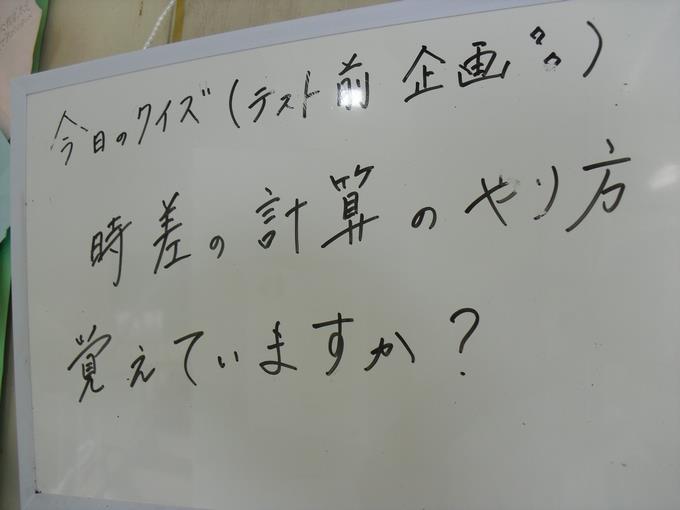 今日のクイズ(テスト前 企画)
時差の計算のやり方
覚えていますか?